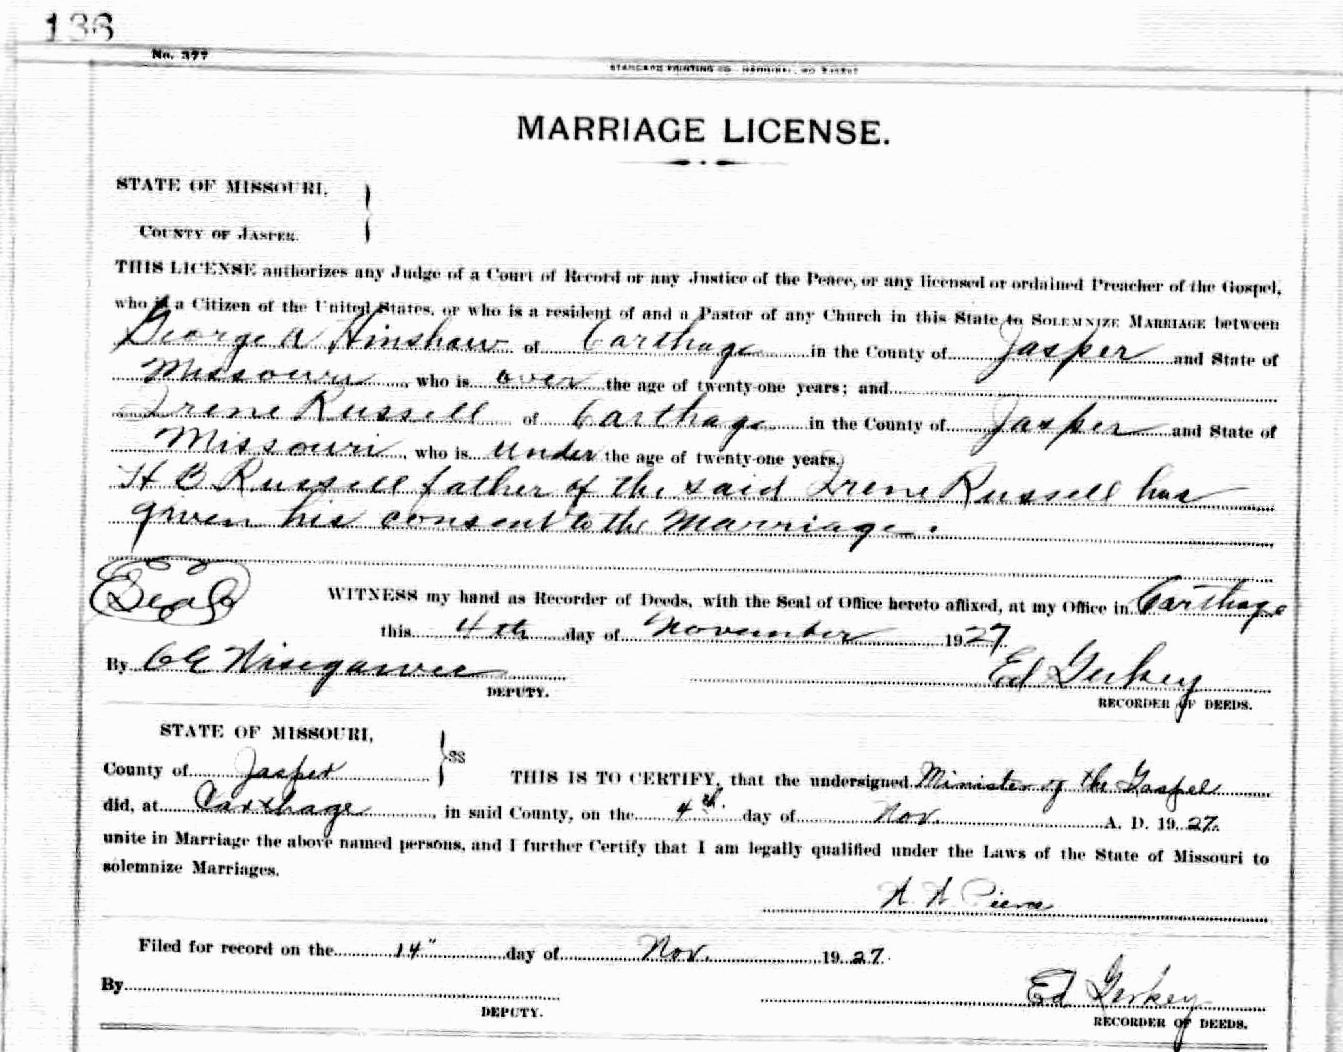 136
No. 377
STANDARD PRINTING CO. HANNIBAL, MO
MARRIAGE LICENSE.
STATE OF MISSOURI,
COUNTY OF JASPER.
THIS LICENSE authorizes any Judge of a Court of Record or any Justice of the Peace, or any licensed or ordained Preacher of the Gospel,
who is a Citizen of the United States, or who is a resident of and a Pastor of any Church in this State to SOLEMNIZE MARRIAGE between
George A Hinshaw of Carthage in the County of Jasper and State of
Missouri, who is over the age of twenty-one years; and
Irene Russell of Carthage in the County of Jasper and State of
Missouri, who is under the age of twenty-one years.
H B Russell father of the said Irene Russell has
given his consent to the Marriage.
Seal WITNESS my hand as Recorder of Deeds, with the Seal of Office hereto affixed, at my Office in Carthage
this 4th day of November 1927.
By C E DEPUTY. Ed Gerkey RECORDER OF DEEDS.
STATE OF MISSOURI,
County of Jasper } SS THIS IS TO CERTIFY, that the undersigned Minister of the Gospel
did, at Carthage, in said County, on the 4th. day of Nov. A. D. 1927.
unite in Marriage the above named persons, and I further Certify that I am legally qualified under the Laws of the State of Missouri to
solemnize Marriages.
Pierce
Filed for record on the 14" day of Nov. 1927.
By DEPUTY. Ed Gerkey RECORDER OF DEEDS.